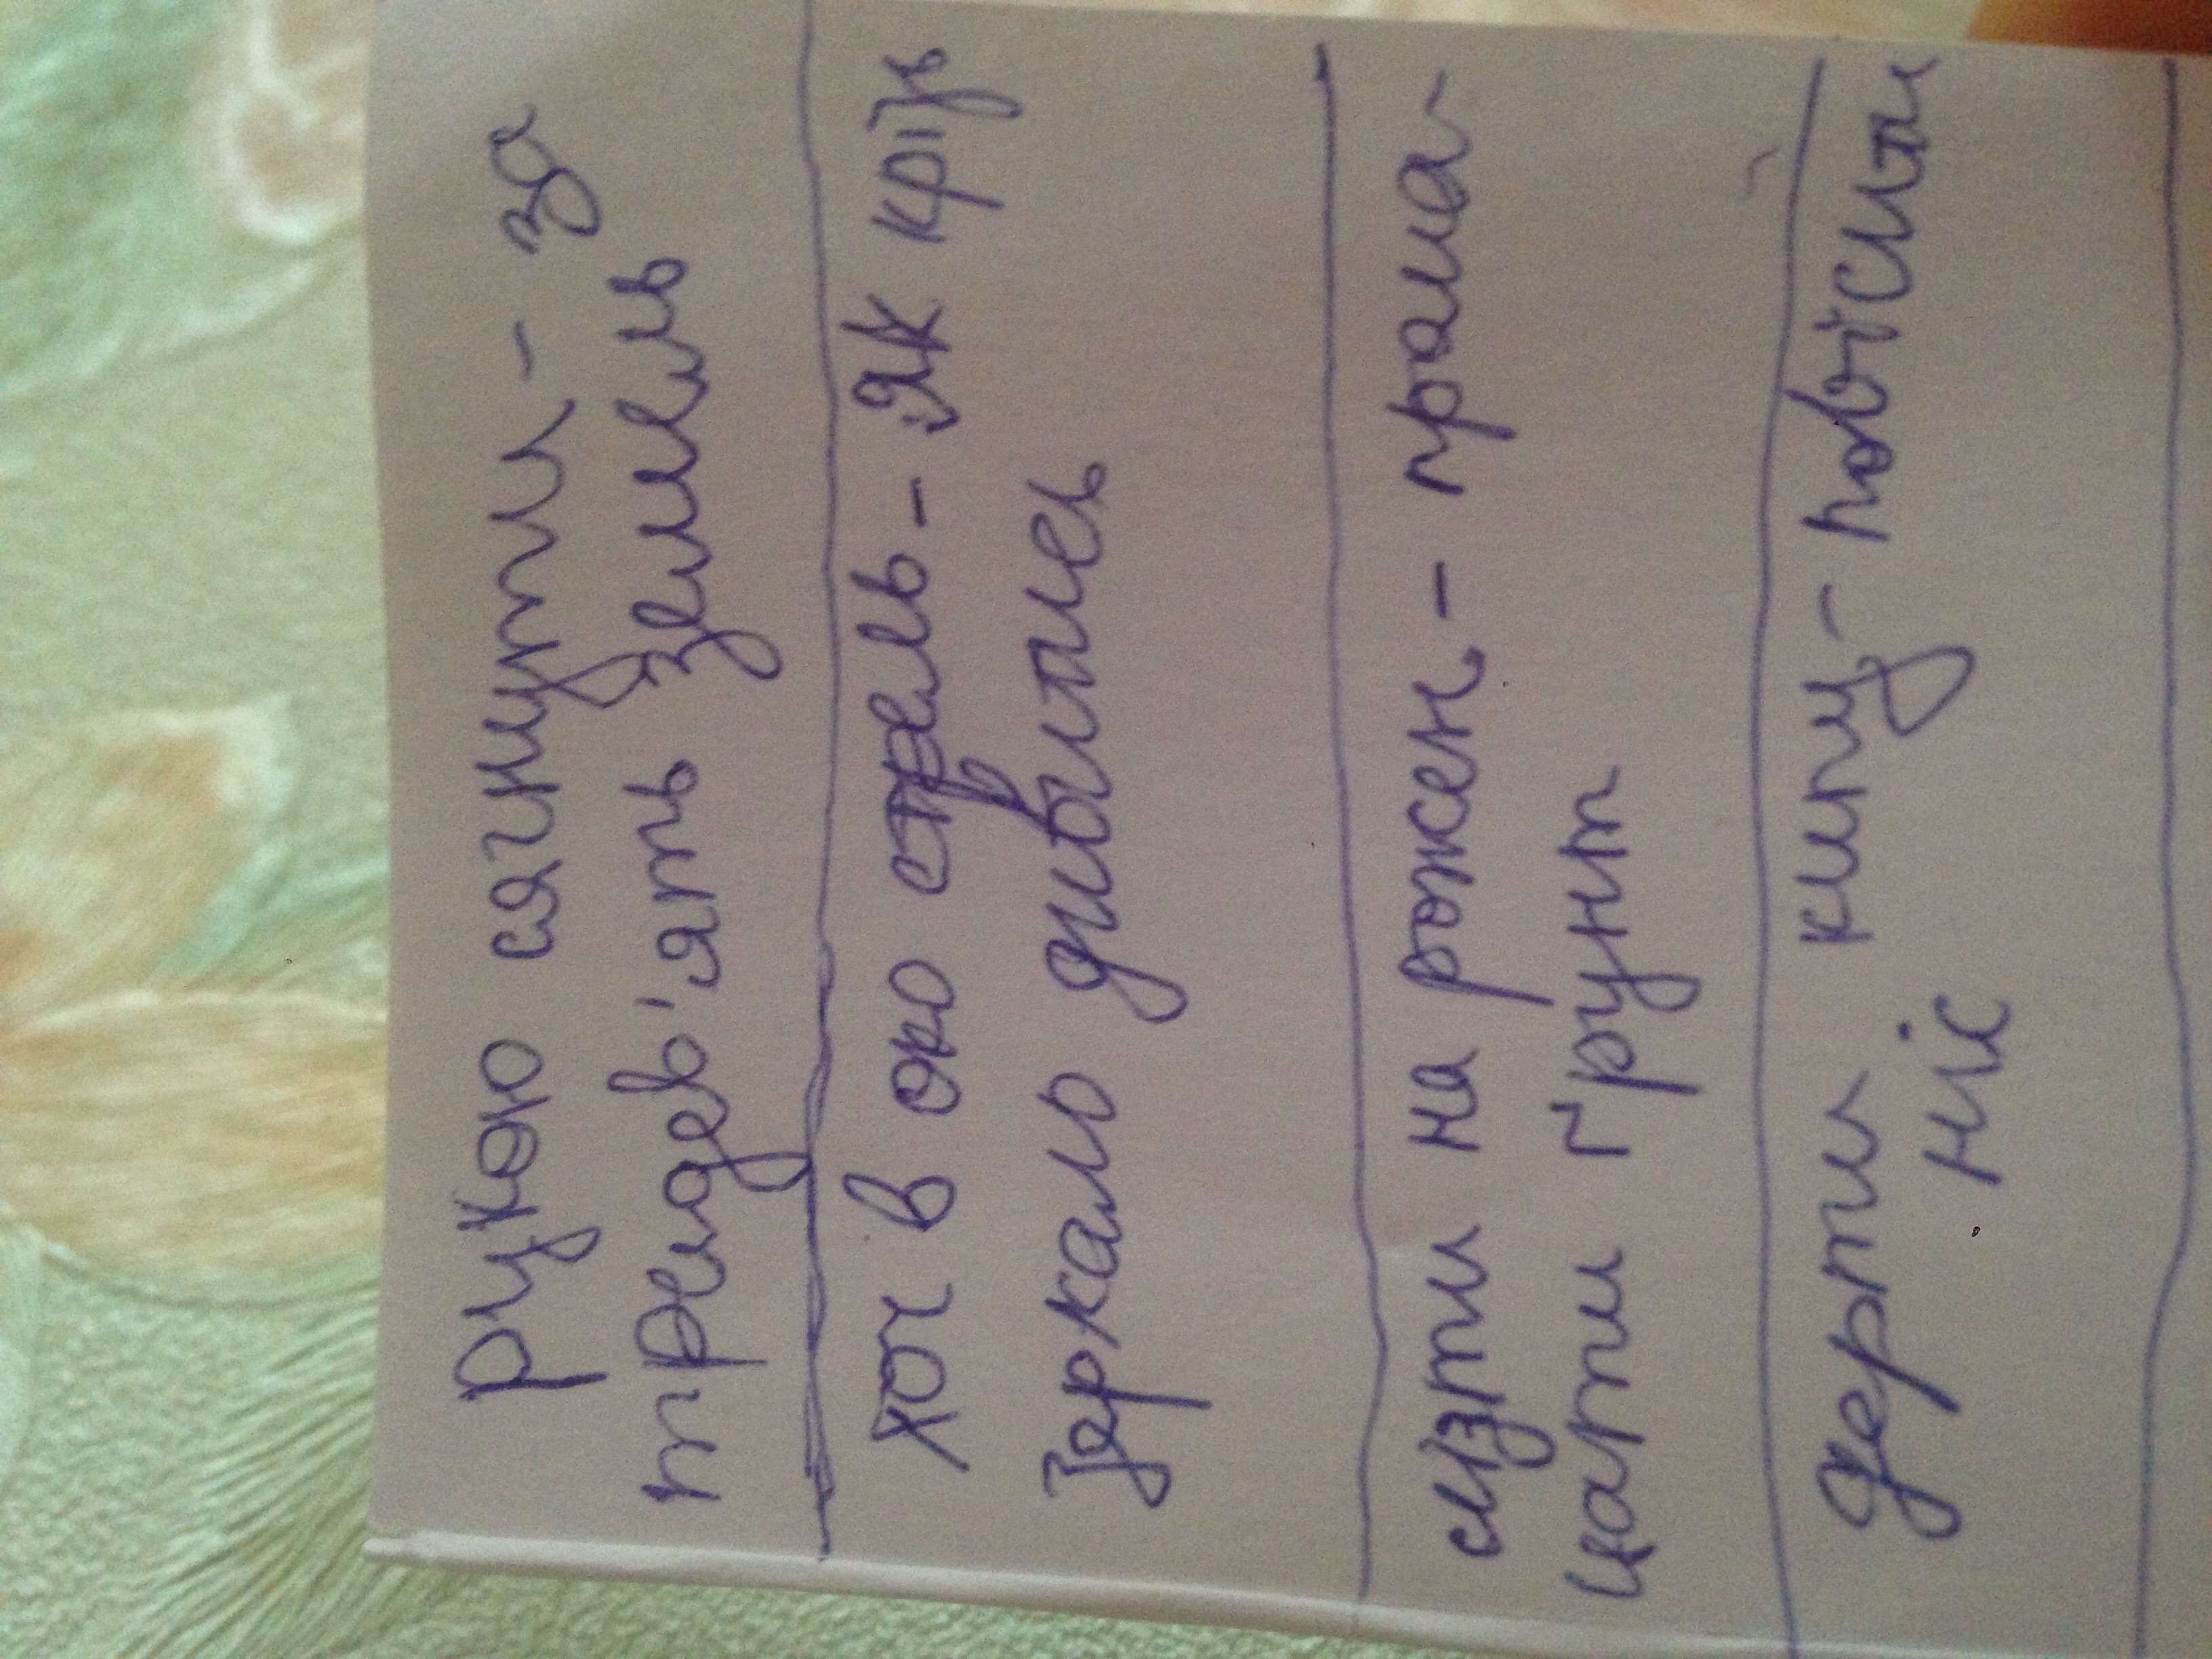 рукою сягнути - за
тридев'ять земель
хоч в око стрель - як крізь
зеркало дивитись
лізти на рожен - трама-
цати ґрунт
дерти кипу - повісили
ніс